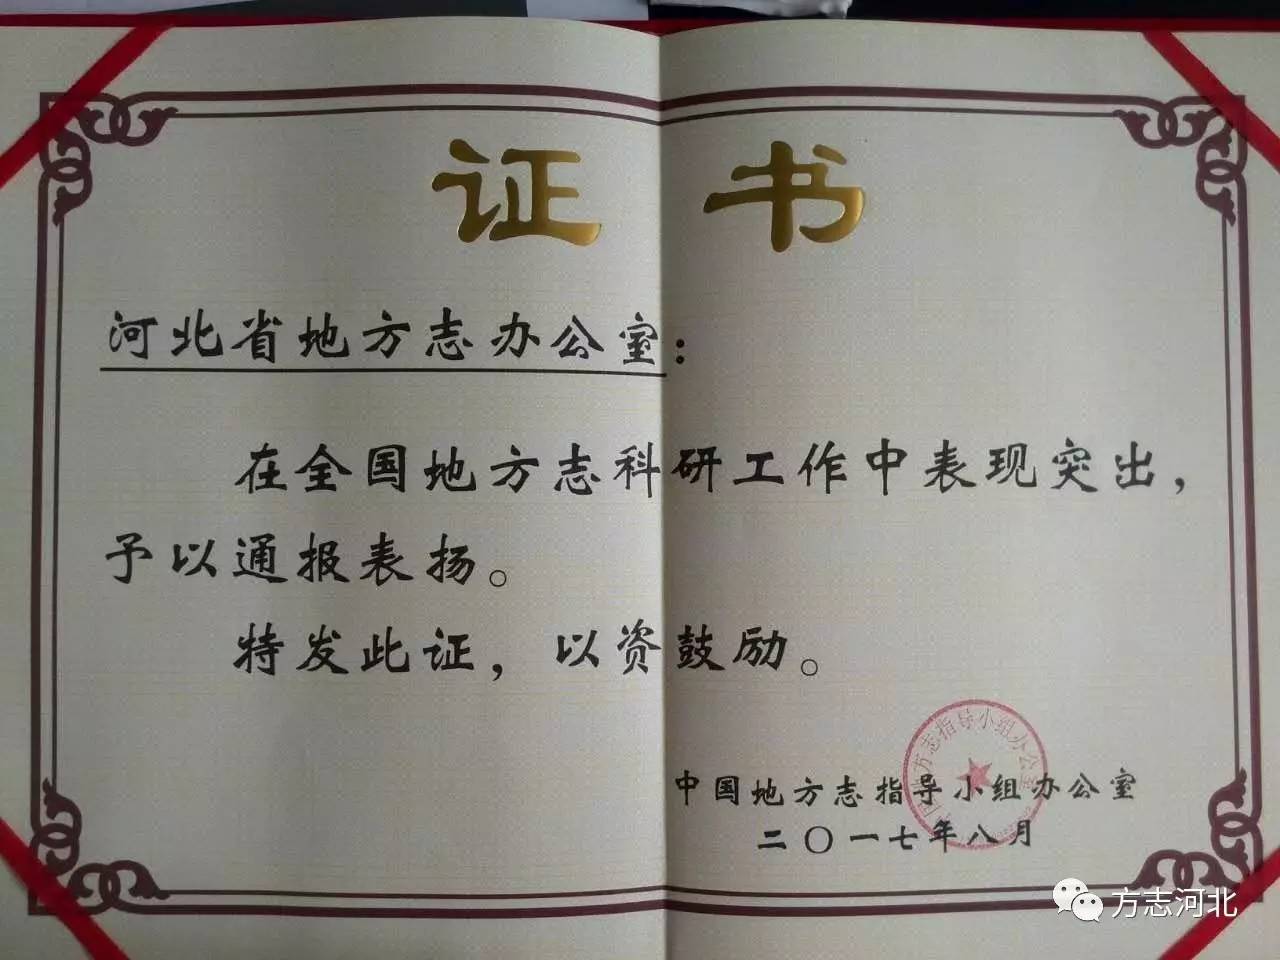 证书
河北省地方志办公室：
在全国地方志科研工作中表现突出，
予以通报表扬。
特发此证，以资鼓励。
方志指导小组办公室
中国地方志指导小组办公室
二〇一七年八月
方志河北